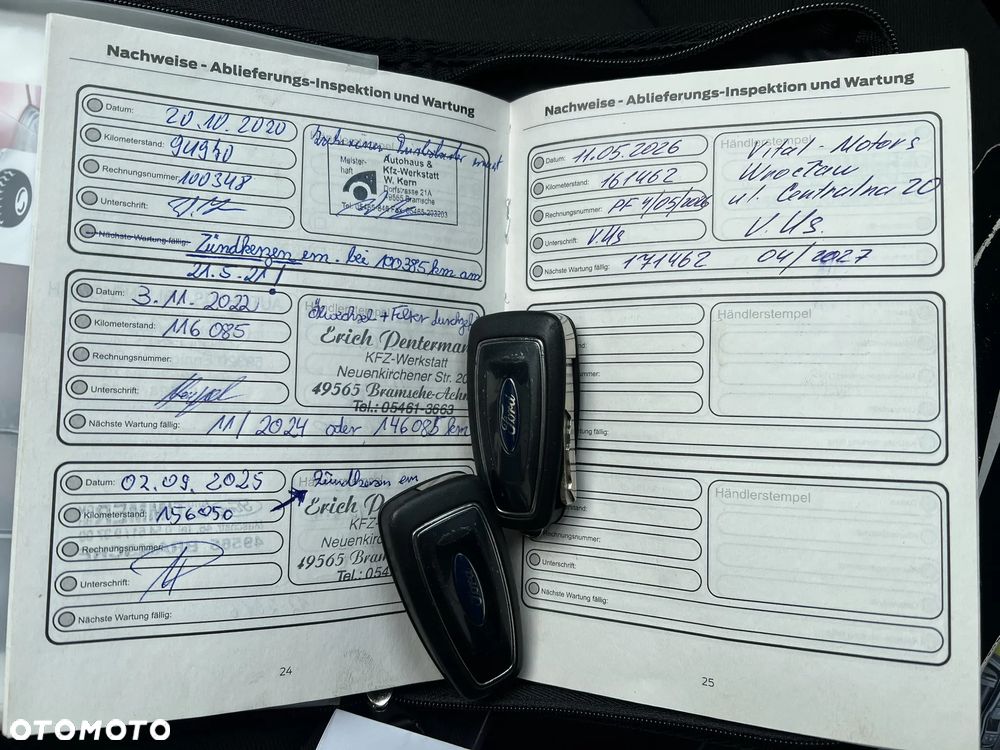 Nachweise - Ablieferungs-Inspektion und Wartung
Datum: 20.10.2020
Kilometerstand: 94940
Rechnungsnummer: 100348
Unterschrift:
Nächste Wartung fällig: Zündkerzen ern. bei 100385 km am
21.5.21!
Meister-
haft
Autohaus &
Kfz-Werkstatt
W. Kern
Dorfstrasse 21A
49565 Bramsche
Datum: 3.11.2022
Kilometerstand: 116085
Rechnungsnummer:
Unterschrift:
Nächste Wartung fällig: 11/2024 oder 146085 km
Ölwechsel + Filter
Erich Penterman
KFZ-Werkstatt
Neuenkirchener Str. 20
49565 Bramsche-Achm
Tel.: 05461-3663
Datum: 02.09.2025
Kilometerstand: 156050
Rechnungsnummer:
Unterschrift:
Nächste Wartung fällig:
Zündkerzen ern
Erich Pente
KFZ-
Neuenkirch
49565 Bram
Tel.: 054
24
Nachweise - Ablieferungs-Inspektion und Wartung
Datum: 11.05.2026
Kilometerstand: 161462
Rechnungsnummer: PF 4/05/2026
Unterschrift: V.Us
Nächste Wartung fällig: 171462 04/2027
Händlerstempel
Vitaly-Motors
Wrocław
ul. Centralna 20
V.Us.
Händlerstempel
Händlerstempel
Rechnungsnummer:
Unterschrift:
Nächste Wartung fällig:
25
Ford
Ford
OTOMOTO